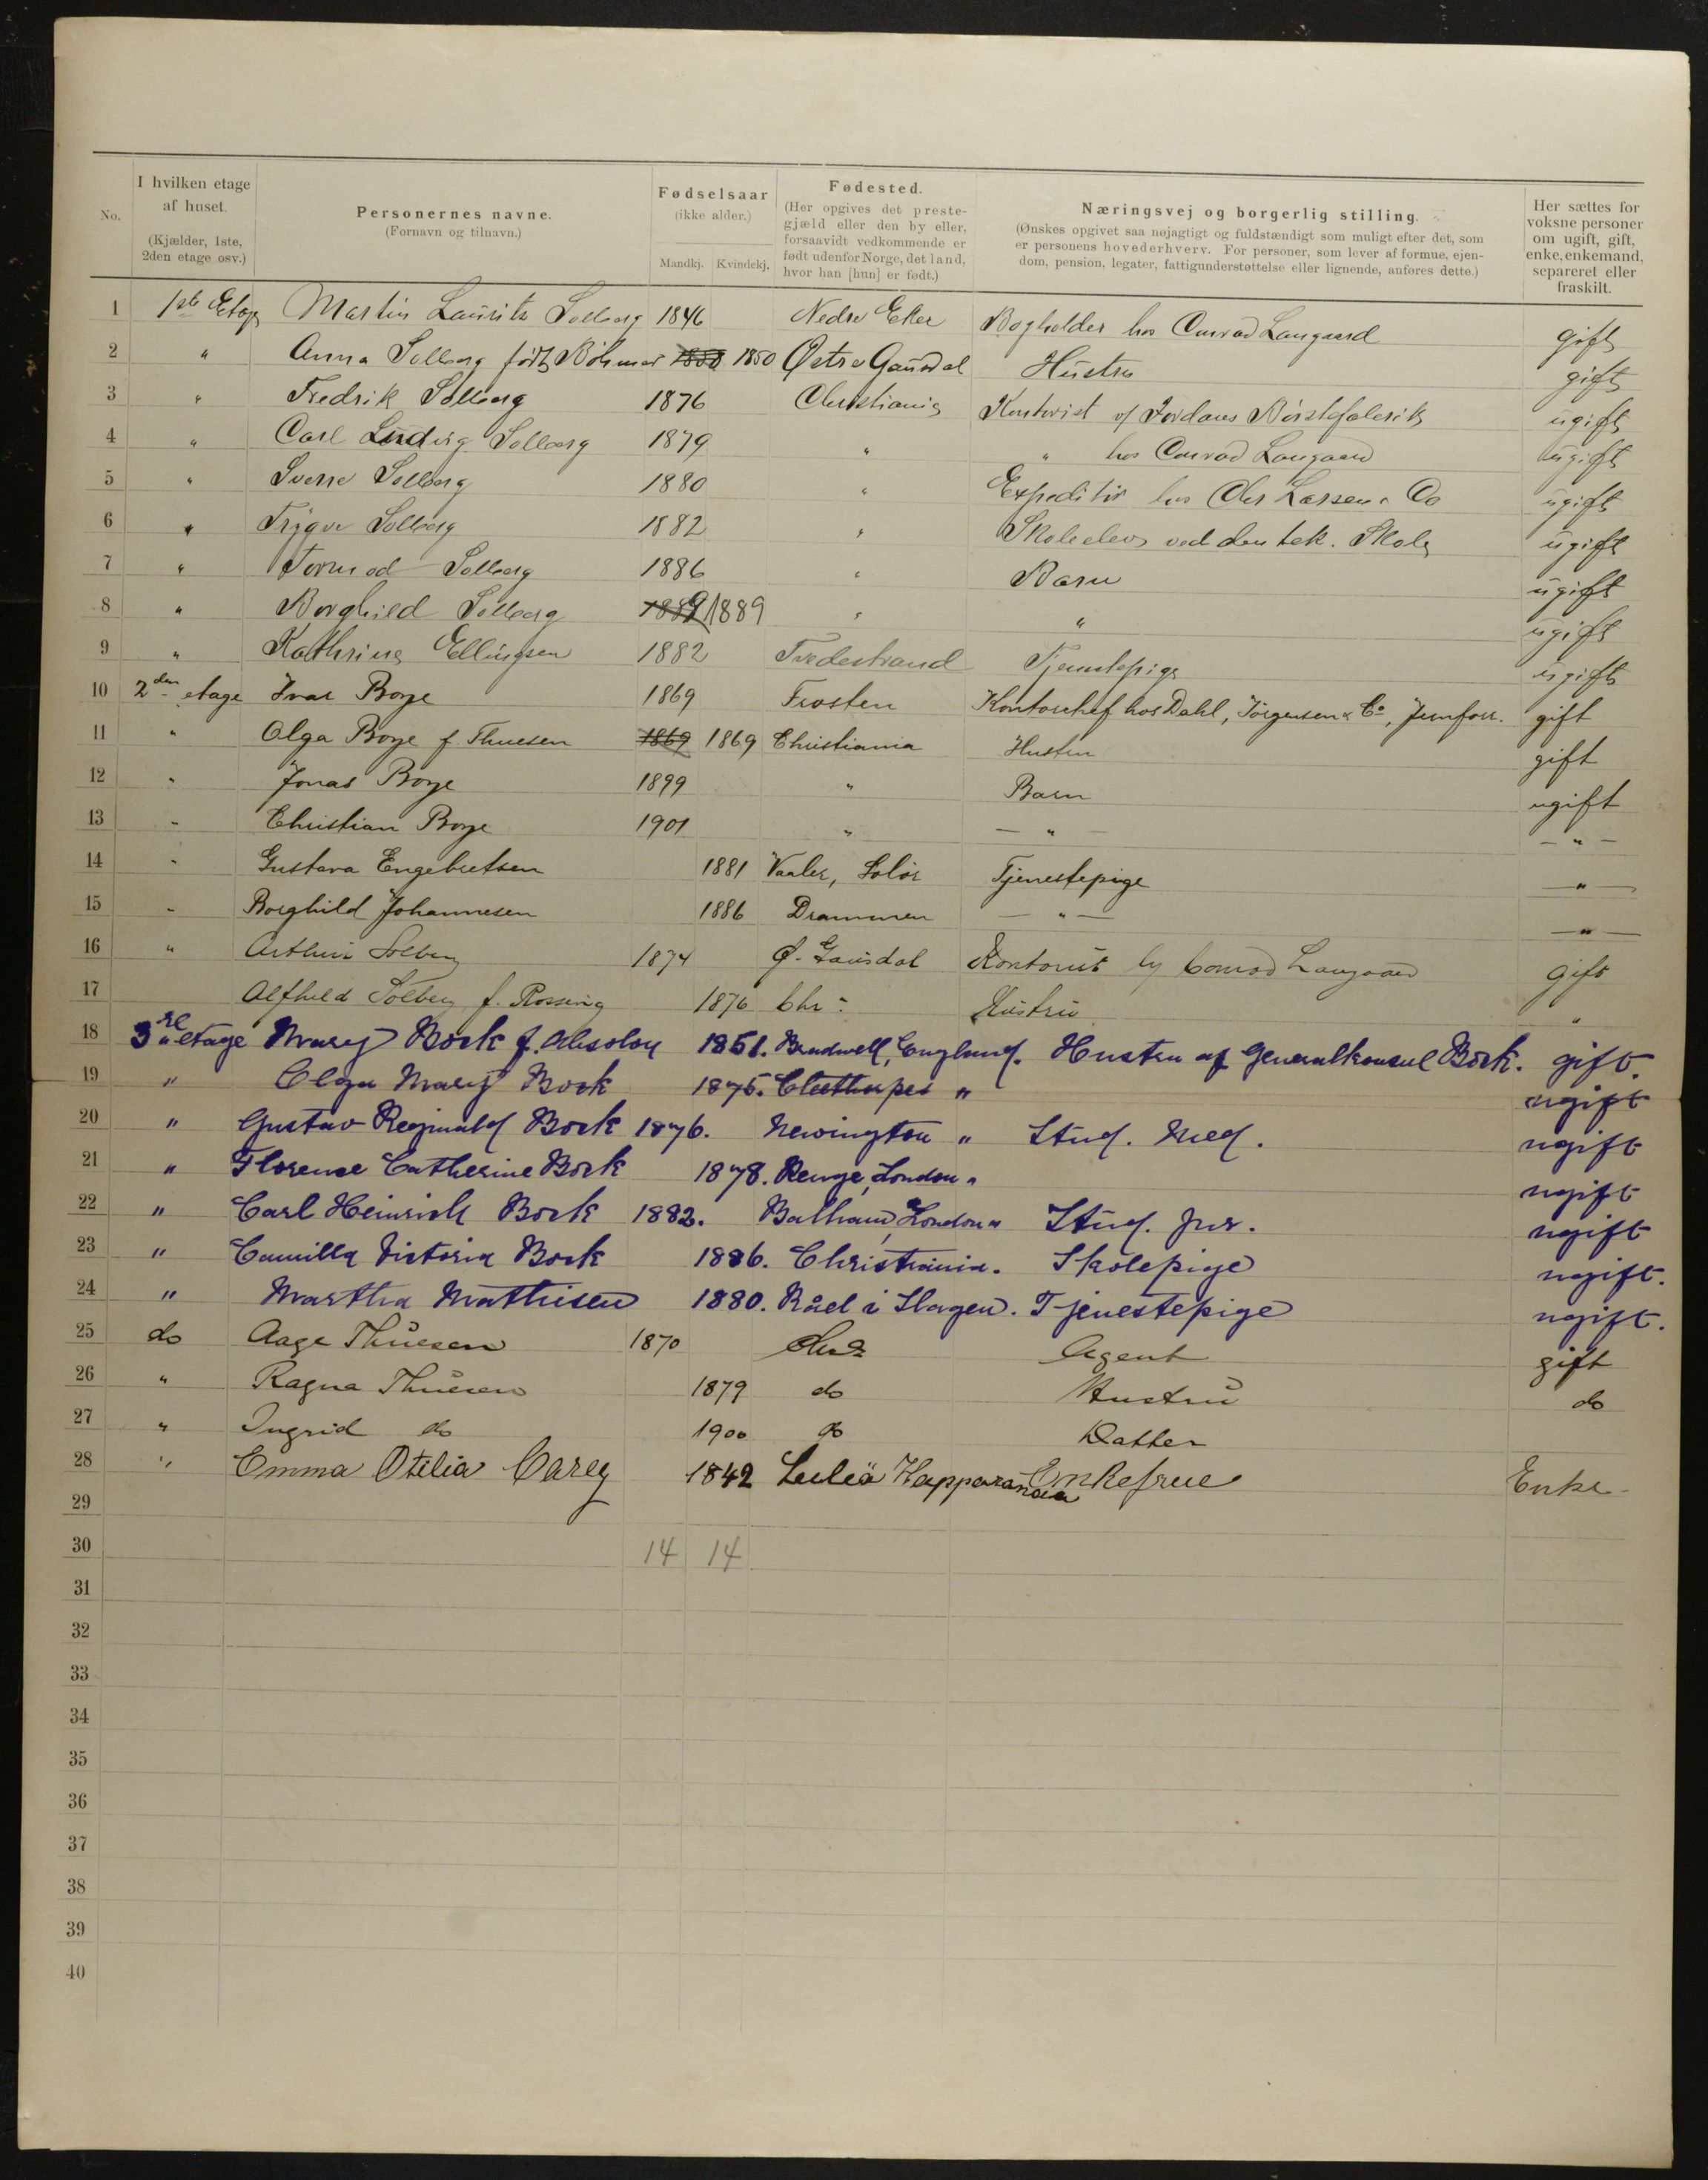 No.
I hvilken etage af huset. (Kjælder, 1ste, 2den etage osv.)
Personernes navne. (Fornavn og tilnavn.)
Fødselsaar (ikke alder.) Mandkj. Kvindekj.
Fødested. (Her opgives det prestegjæld eller den by eller, forsaavidt vedkommende er født udenfor Norge, det land, hvor han [hun] er født.)
Næringsvej og borgerlig stilling. (Ønskes opgivet saa nøjagtigt og fuldstændigt som muligt efter det, som er personens hovederhverv. For personer, som lever af formue, ejendom, pension, legater, fattigunderstøttelse eller lignende, anføres dette.)
Her sættes for voksne personer om ugift, gift, enke, enkemand, separeret eller fraskilt.
1 1ste Etage Martin Lauritz Solberg 1846 Nedre Eker Bogholder hos Conrad Langaard gift
2 " Anna Solberg født Böhmer 1850 1850 Østre Gausdal Hustru gift
3 " Fredrik Solberg 1876 Christiania Kontorist v/ Jordans Børstefabrik ugift
4 " Carl Ludvig Solberg 1879 " " hos Conrad Langaard ugift
5 " Sverre Solberg 1880 " Expeditør hos Chr Larsen & Co ugift
6 " Trygve Solberg 1882 " Skoleelev ved den tek. Skole ugift
7 " Tormod Solberg 1886 " Barn ugift
8 " Borghild Solberg 1889 1889 " " ugift
9 " Kathrine Ellingsen 1882 Tvedestrand Tjenestepige ugift
10 2den etage Ivar Borge 1869 Frosten Kontorchef hos Dahl, Jörgensen & Co, Jernforr. gift
11 " Olga Borge f. Thuesen 1869 1869 Christiania Hustru gift
12 " Jonas Borge 1899 " Barn ugift
13 " Christian Borge 1901 " — " — — " —
14 " Gustava Engebretsen 1881 Vaaler, Solör Tjenestepige — " —
15 " Borghild Johannesen 1886 Drammen — " — — " —
16 " Arthur Solberg 1874 Ø. Gausdal Kontorist hj Conrad Langaard gift
17 Alfhild Solberg f. Rossing 1876 Chr: Hustru "
18 3die etage Mary Bock f. Absolon 1851. Bradwell, England. Hustru af Generalkonsul Bock. gift.
19 " Olga Mary Bock 1875. Cleethorpes " ugift
20 " Gustav Reginald Bock 1876. Newington " Stud. Med. ugift
21 " Florence Catherine Bock 1878. Penge, London " ugift
22 " Carl Heinrich Bock 1882. Balham, London " Stud. Jur. ugift
23 " Camilla Victoria Bock 1886. Christiania. Skolepige ugift.
24 " Martha Mathisen 1880. Råel i Slagen. Tjenestepige ugift.
25 do Aage Thuesen 1870 Chr. Agent gift
26 " Ragna Thuesen 1879 do Hustru do
27 " Ingrid do 1900 do Datter
28 " Emma Otilia Carey 1842 Luleå Happaranda Enkefrue Enke
29
30 14 14
31
32
33
34
35
36
37
38
39
40